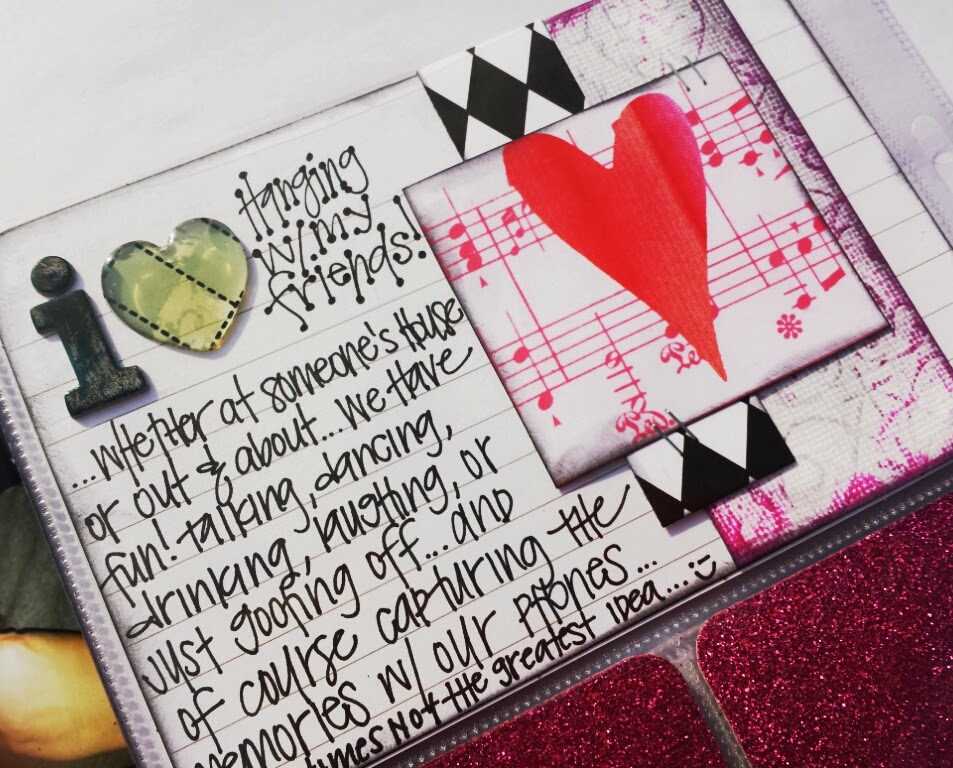 i
Hanging
w/my
friends!
...whether at someone's house
or out & about... we have
fun! talking, dancing,
drinking, laughing, or
just goofing off... and
of course capturing the
memories w/ our phones...
times not the greatest idea...